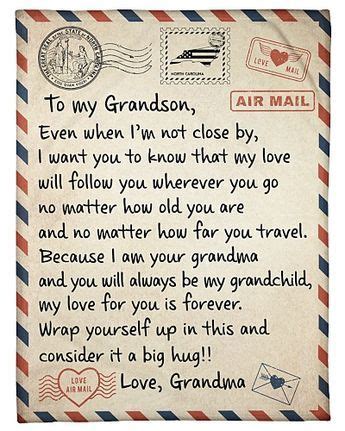 THE GREAT SEAL OF THE STATE OF NORTH CAROLINA
ESSE QUAM VIDERI
NORTH CAROLINA
LOVE MAIL
AIR MAIL
To my Grandson,
Even when I'm not close by,
I want you to know that my love
will follow you wherever you go
no matter how old you are
and no matter how far you travel.
Because I am your grandma
and you will always be my grandchild,
my love for you is forever.
Wrap yourself up in this and
consider it a big hug!!
Love, Grandma
LOVE
AIR MAIL